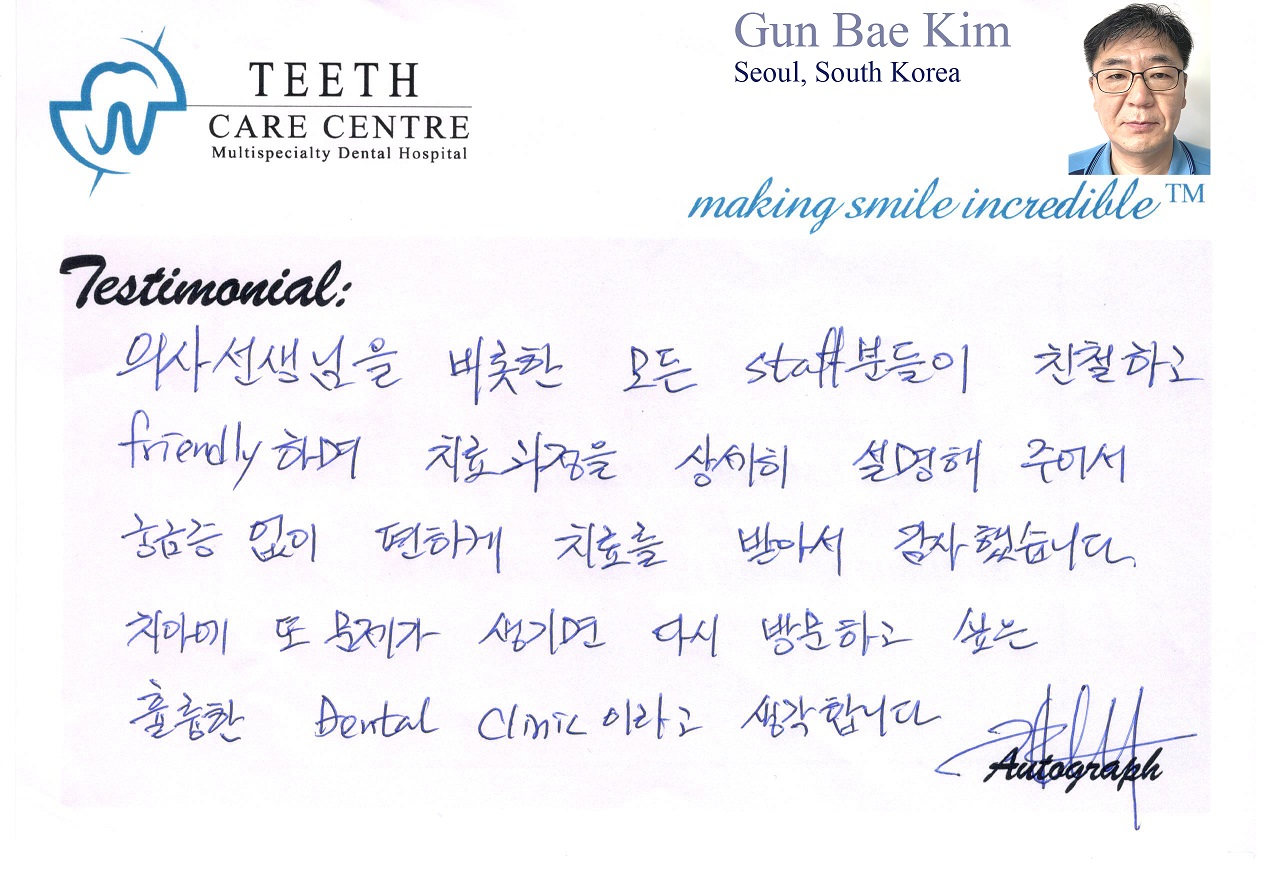 TEETH
CARE CENTRE
Multispecialty Dental Hospital
Gun Bae Kim
Seoul, South Korea
making smile incredible™
Testimonial:
의사선생님을 비롯한 모든 staff분들이 친철하고
friendly하며 치료과정을 상세히 설명해 주어서
궁금증 없이 편하게 치료를 받아서 감사했습니다.
치아에 또 문제가 생기면 다시 방문하고 싶은
훌륭한 Dental Clinic이라고 생각합니다
Autograph